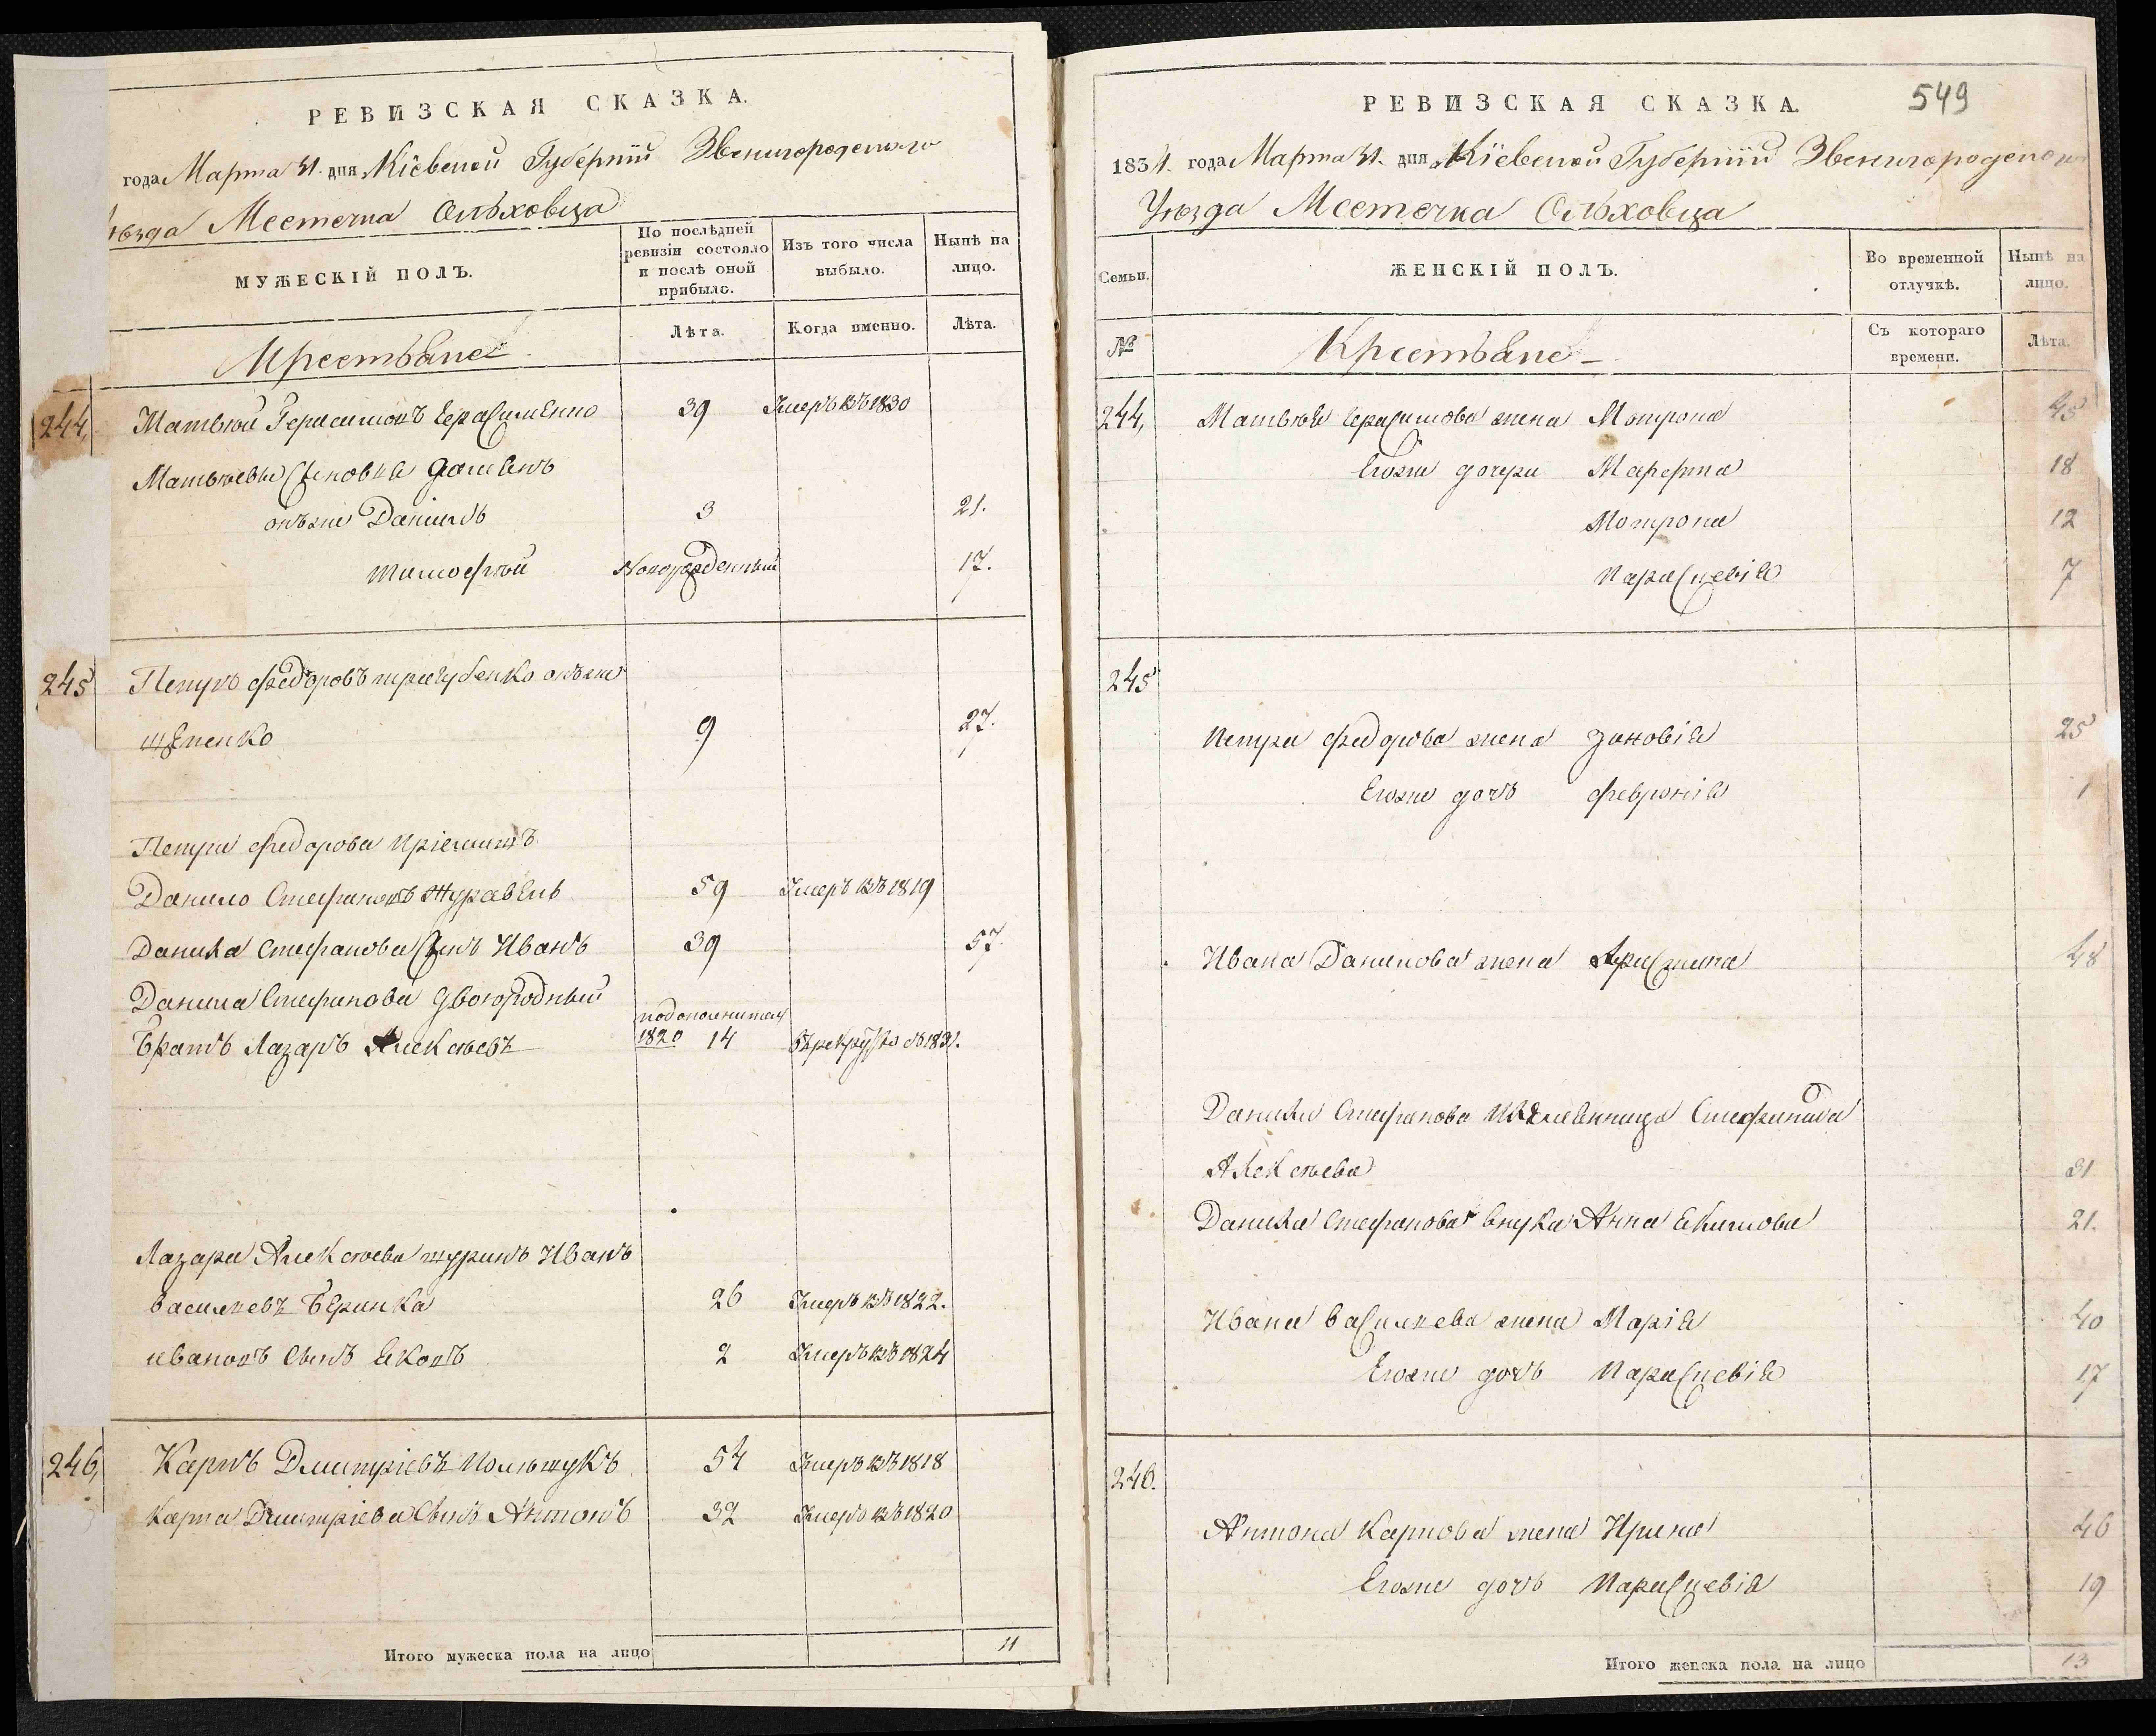 РЕВИЗСКАЯ СКАЗКА.
года Марта 31. дня Кіевской Губерніи Звенигородского
уѣзда Местечка Ольховца
МУЖЕСКІЙ ПОЛЪ.
По послѣдней ревизіи состояло и послѣ оной прибыло.
Изъ того числа выбыло.
Нынѣ на лицо.
Лѣта.
Когда именно.
Лѣта.
Крестьяне
244, Матвѣй Герасимовъ Герасименко 39 Умеръ въ 1830
Матвѣевы Сыновья
онъже Данило 3 21.
тимофѣй Новорожденный 17.
245 Петръ федоровъ тригубенко онъже
9 27.
Петра федорова Пріемышъ
Данило Стефановъ Журавель 59 Умеръ въ 1819
Данила Стефанова Сынъ Иванъ 39 57.
Данила Стефанова двоюродный
Братъ Лазаръ Алексѣевъ 1820 14
Лазара Алексѣева шуринъ Иванъ
василіевъ 26 Умеръ въ 1822.
ивановъ Сынъ Яковъ 2 Умеръ въ 1824
246, Карпъ Дмитріевъ Полищукъ 54 Умеръ въ 1818
Карпа Дмитріева Сынъ Антонъ 32 Умеръ въ 1820
Итого мужеска пола на лицо 11
РЕВИЗСКАЯ СКАЗКА.
549
1834. года Марта 31. дня Кіевской Губерніи Звенигородского
Уѣзда Местечка Ольховца
Семьи.
ЖЕНСКІЙ ПОЛЪ.
Во временной отлучкѣ.
Нынѣ на лицо.
№
Крестьяне
Съ котораго времени.
Лѣта.
244, Матвѣя Герасимова жена Мотрона 45
Егоже дочери Марфта 18
Мотрона 12
Параскевія 7
245
Петра федорова жена зиновія 25
Егоже дочь февронія 1
Ивана Данилова жена 48
Данила Стефанова Стефанида
Алексѣева 31
Данила Стефанова внука Анна Якимова 21.
Ивана василіева жена Марія 40
Егоже дочь Параскевія 17
246.
Антона Карпова жена Ирина 46
Егоже дочь Параскевія 19
Итого женска пола на лицо 13